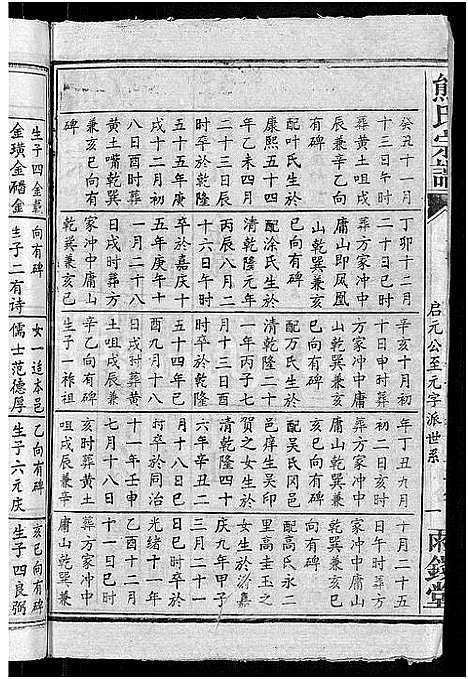 熊氏宗譜
启元公至元字派世系
一
癸丑十一月
十三日午時
葬黄土咀戌
辰兼辛乙向
有碑
配叶氏生於
康熙五十
年乙未四月
時卒於乾隆
五十五年庚
戌十二月初
八日酉時葬
黄土嘴乾巽
兼亥巳向有
碑
丁卯十二月
二十日巳時
葬方家冲中
庸山即凤凰
山乾巽兼亥
巳向有碑
配涂氏生於
清乾隆元年
丙辰八月二
十六日午時
卒於嘉庆十
五年庚午十
一月二十八
日戌時葬方
家冲中庸山
乾巽兼亥巳
辛亥十月初
十日申時葬
方家冲中庸
山乾巽兼亥
巳向有碑
配万氏生於
清乾隆二十
一年丙子七
月十三日酉
時卒於
酉九月十八
日戌時葬黄
土咀戌辰兼
辛乙向有碑
生子一祚祖
年丁丑九月
初二日亥時
葬方家冲中
庸山乾巽兼
亥巳向有碑
配吴氏冈邑
邑庠生吴印
賀之女生於
清乾隆四十
六年辛丑二
月十八日巳
时卒於同治
十一年壬申
七月十八日
亥時葬黄土
咀戌辰兼辛
十月二十五
日
有碑
配高氏永二
里高圭玉之
女生於嘉
庆九年甲子
三月二十一
日巳时卒於
光緒十一年
乙酉十二月
十一日巳時
葬方家冲中
庸山乾巽兼
生子四金載
金璜金磻金
向有碑
生子二有诗
女一适本邑
儒士范德厚
乙向有碑
生子六元庆
亥巳向有碑
生子四良弼